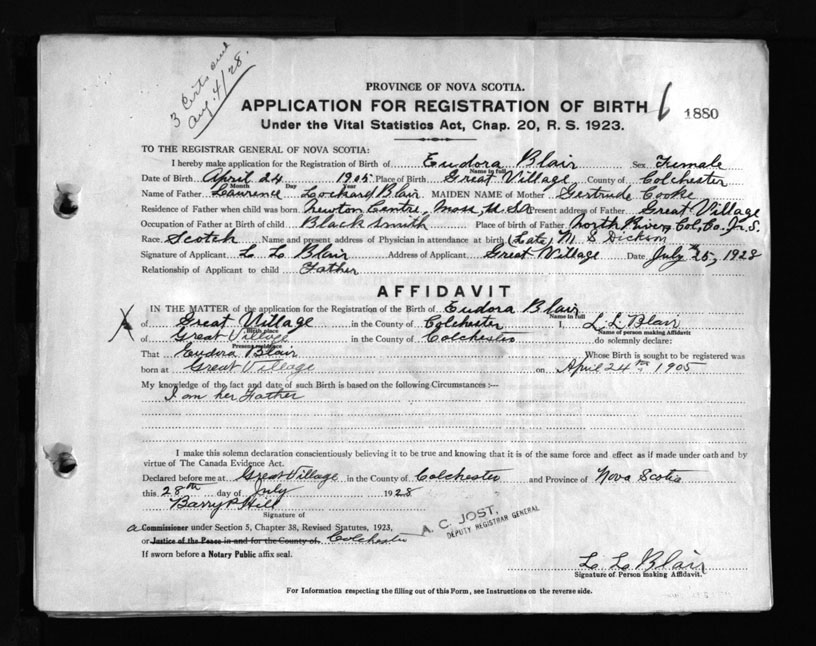 3 Certs and
Aug. 4/28.
PROVINCE OF NOVA SCOTIA.
APPLICATION FOR REGISTRATION OF BIRTH
1880
Under the Vital Statistics Act, Chap. 20, R. S. 1923.
TO THE REGISTRAR GENERAL OF NOVA SCOTIA:
I hereby make application for the Registration of Birth of Eudora Blair Sex Female
Name in full
Date of Birth April 24 1905 Place of Birth Great Village County of Colchester
Month Day Year
Name of Father Lawrence Lockard Blair MAIDEN NAME of Mother Gertrude Cooke
Residence of Father when child was born Newton Centre, Mass, U.S.A. Present address of Father Great Village
Occupation of Father at Birth of child Blacksmith Place of birth of Father North River, Col. Co. N.S.
Race Scotch Name and present address of Physician in attendance at birth (Late) M S Dickson
Signature of Applicant L L Blair Address of Applicant Great Village Date July 25, 1928
Relationship of Applicant to child Father
AFFIDAVIT
IN THE MATTER of the application for the Registration of the Birth of Eudora Blair
Name in full
of Great Village in the County of Colchester I, L L Blair
Birth place Name of person making Affidavit
of Great Village in the County of Colchester do solemnly declare:
Present residence
That Eudora Blair Whose Birth is sought to be registered was
born at Great Village on April 24th 1905
My knowledge of the fact and date of such Birth is based on the following Circumstances :—
I am her Father
I make this solemn declaration conscientiously believing it to be true and knowing that it is of the same force and effect as if made under oath and by
virtue of The Canada Evidence Act.
Declared before me at Great Village in the County of Colchester and Province of Nova Scotia
this 28th day of July 1928
Barry Hill
Signature of
a Commissioner under Section 5, Chapter 38, Revised Statutes, 1923,
or Justice of the Peace in and for the County of Colchester
A. C. JOST,
DEPUTY REGISTRAR GENERAL
If sworn before a Notary Public affix seal.
L L Blair
Signature of Person making Affidavit.
For Information respecting the filling out of this Form, see Instructions on the reverse side.